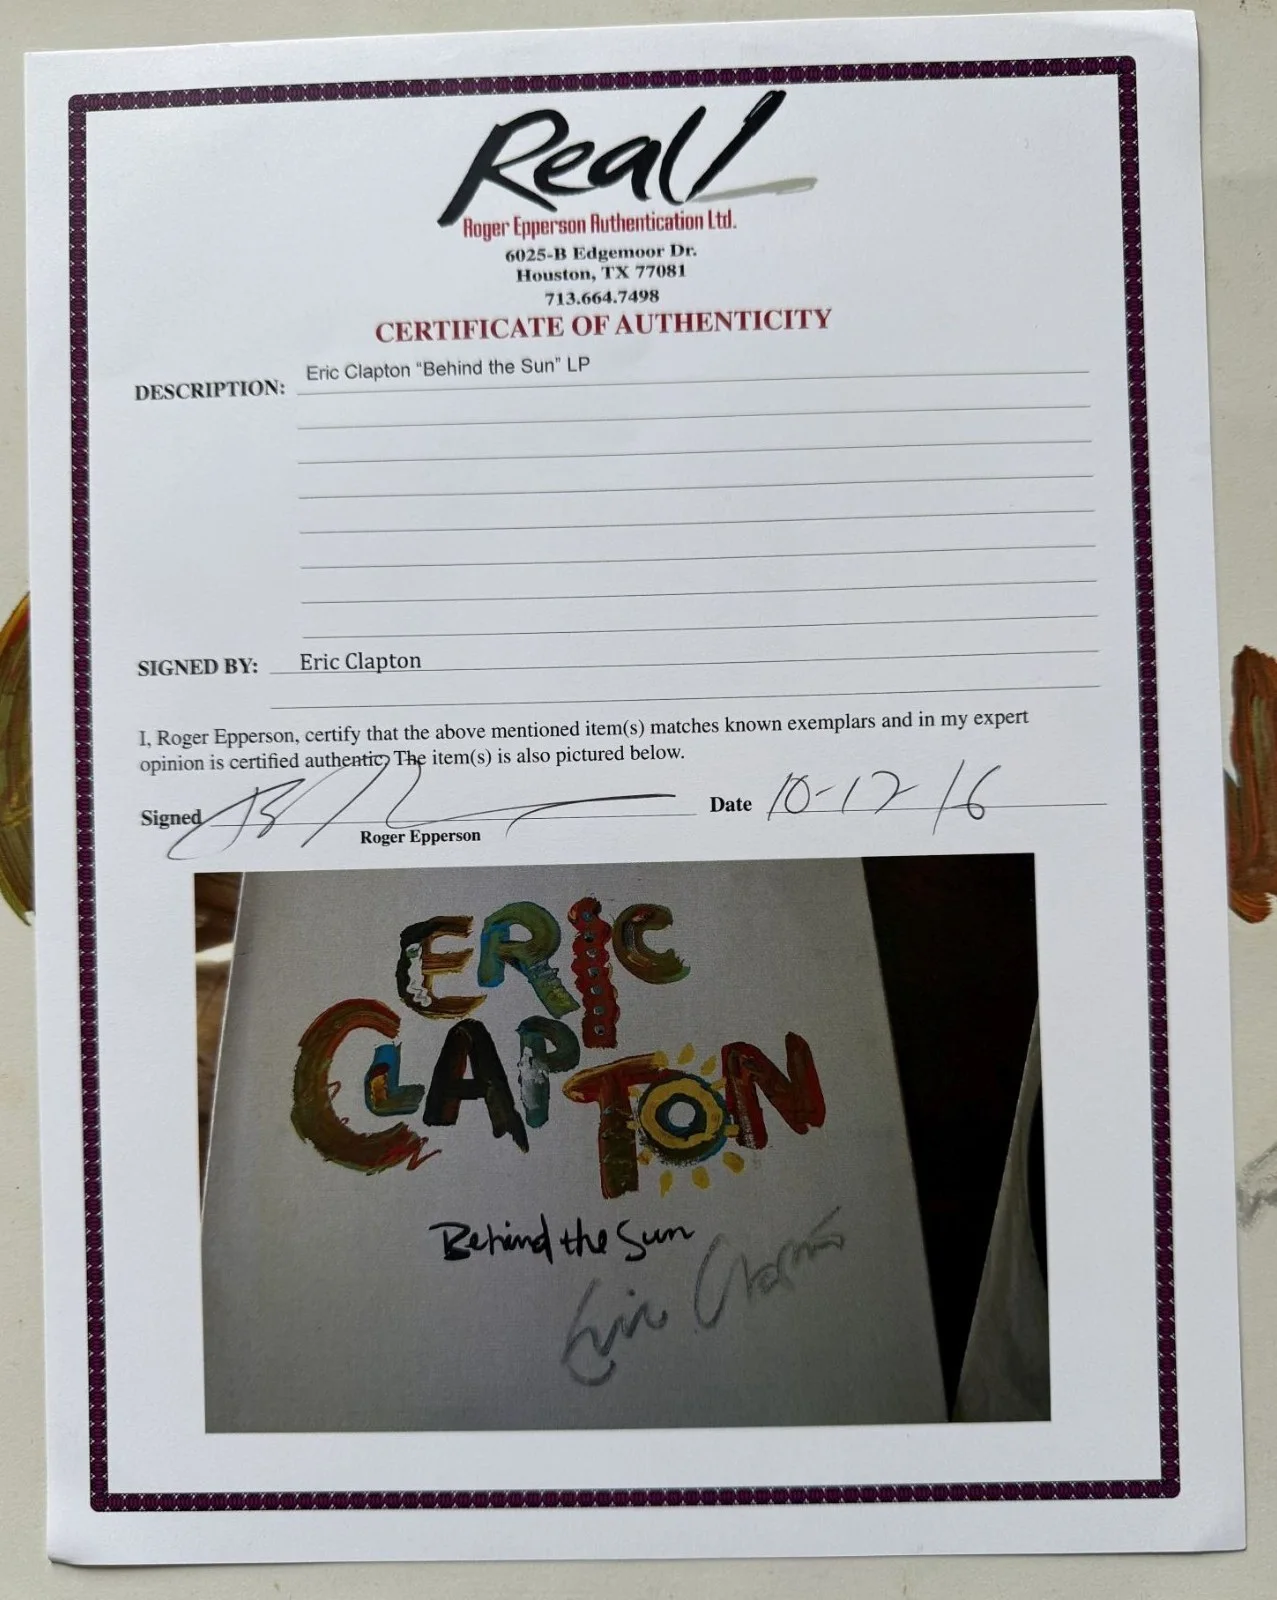 Real!
Roger Epperson Authentication Ltd.
6025-B Edgemoor Dr.
Houston, TX 77081
713.664.7498
CERTIFICATE OF AUTHENTICITY
DESCRIPTION: Eric Clapton “Behind the Sun” LP
SIGNED BY: Eric Clapton
I, Roger Epperson, certify that the above mentioned item(s) matches known exemplars and in my expert
opinion is certified authentic. The item(s) is also pictured below.
Signed Date 10-12-16
Roger Epperson
ERIC
CLAPTON
Behind the Sun
Eric Clapton